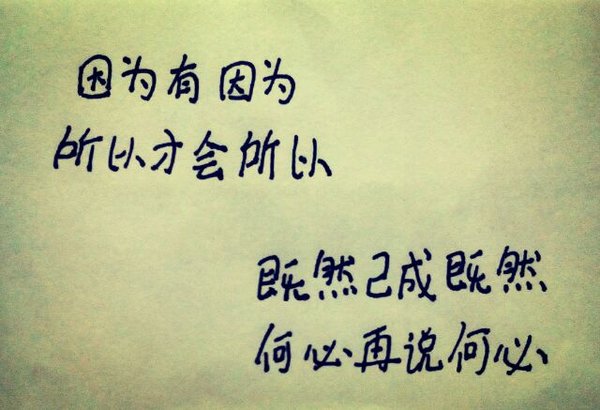 因为有因为
所以才会所以
既然已成既然
何必再说何必